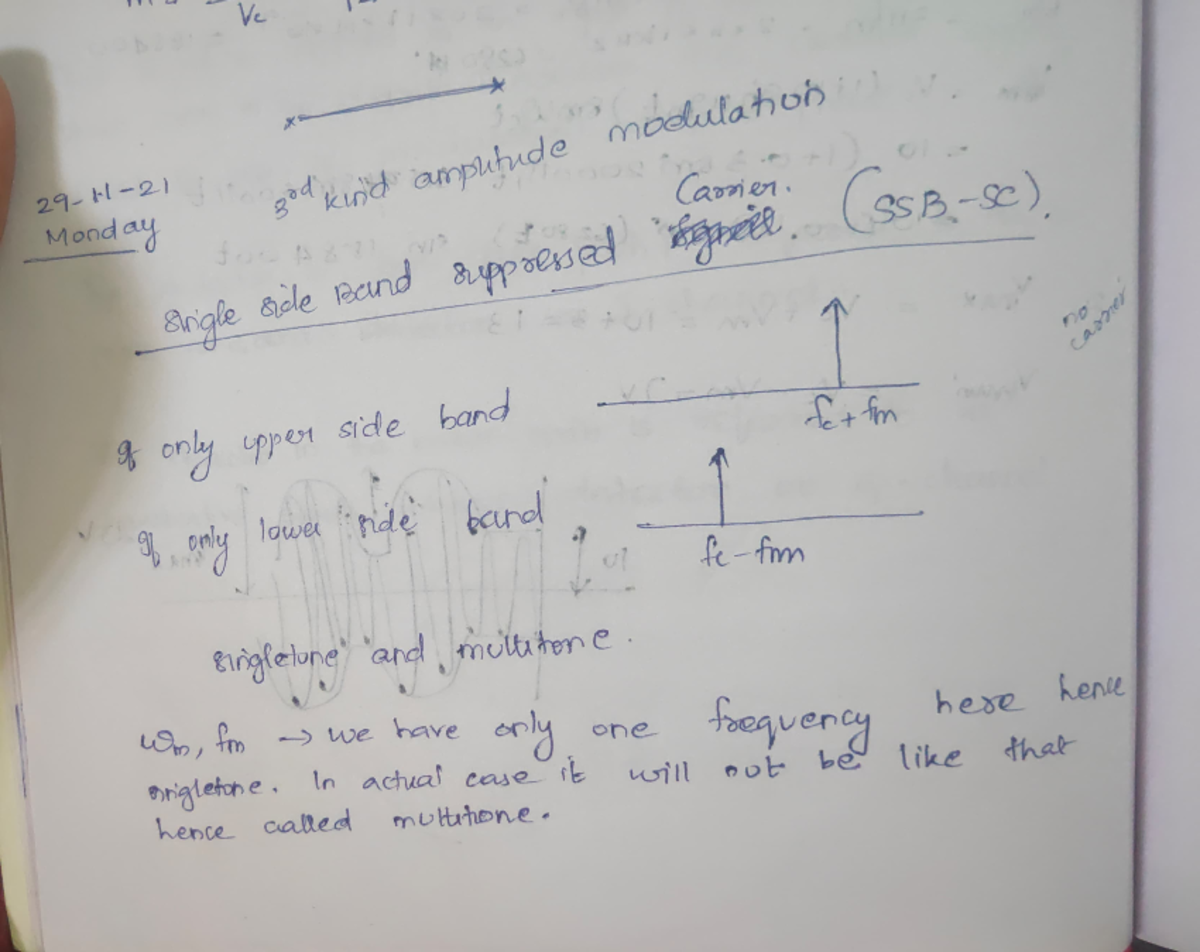 Vc
29-11-21
Monday
3rd kind amplitude modulation
Single side Band suppressed Carrier. (SSB-SC).
no carrier
If only upper side band
fc + fm
If only lower side band
fc - fm
singletone and multitone.
ωm, fm → we have only one frequency here hence
singletone. In actual case it will not be like that
hence called multitone.